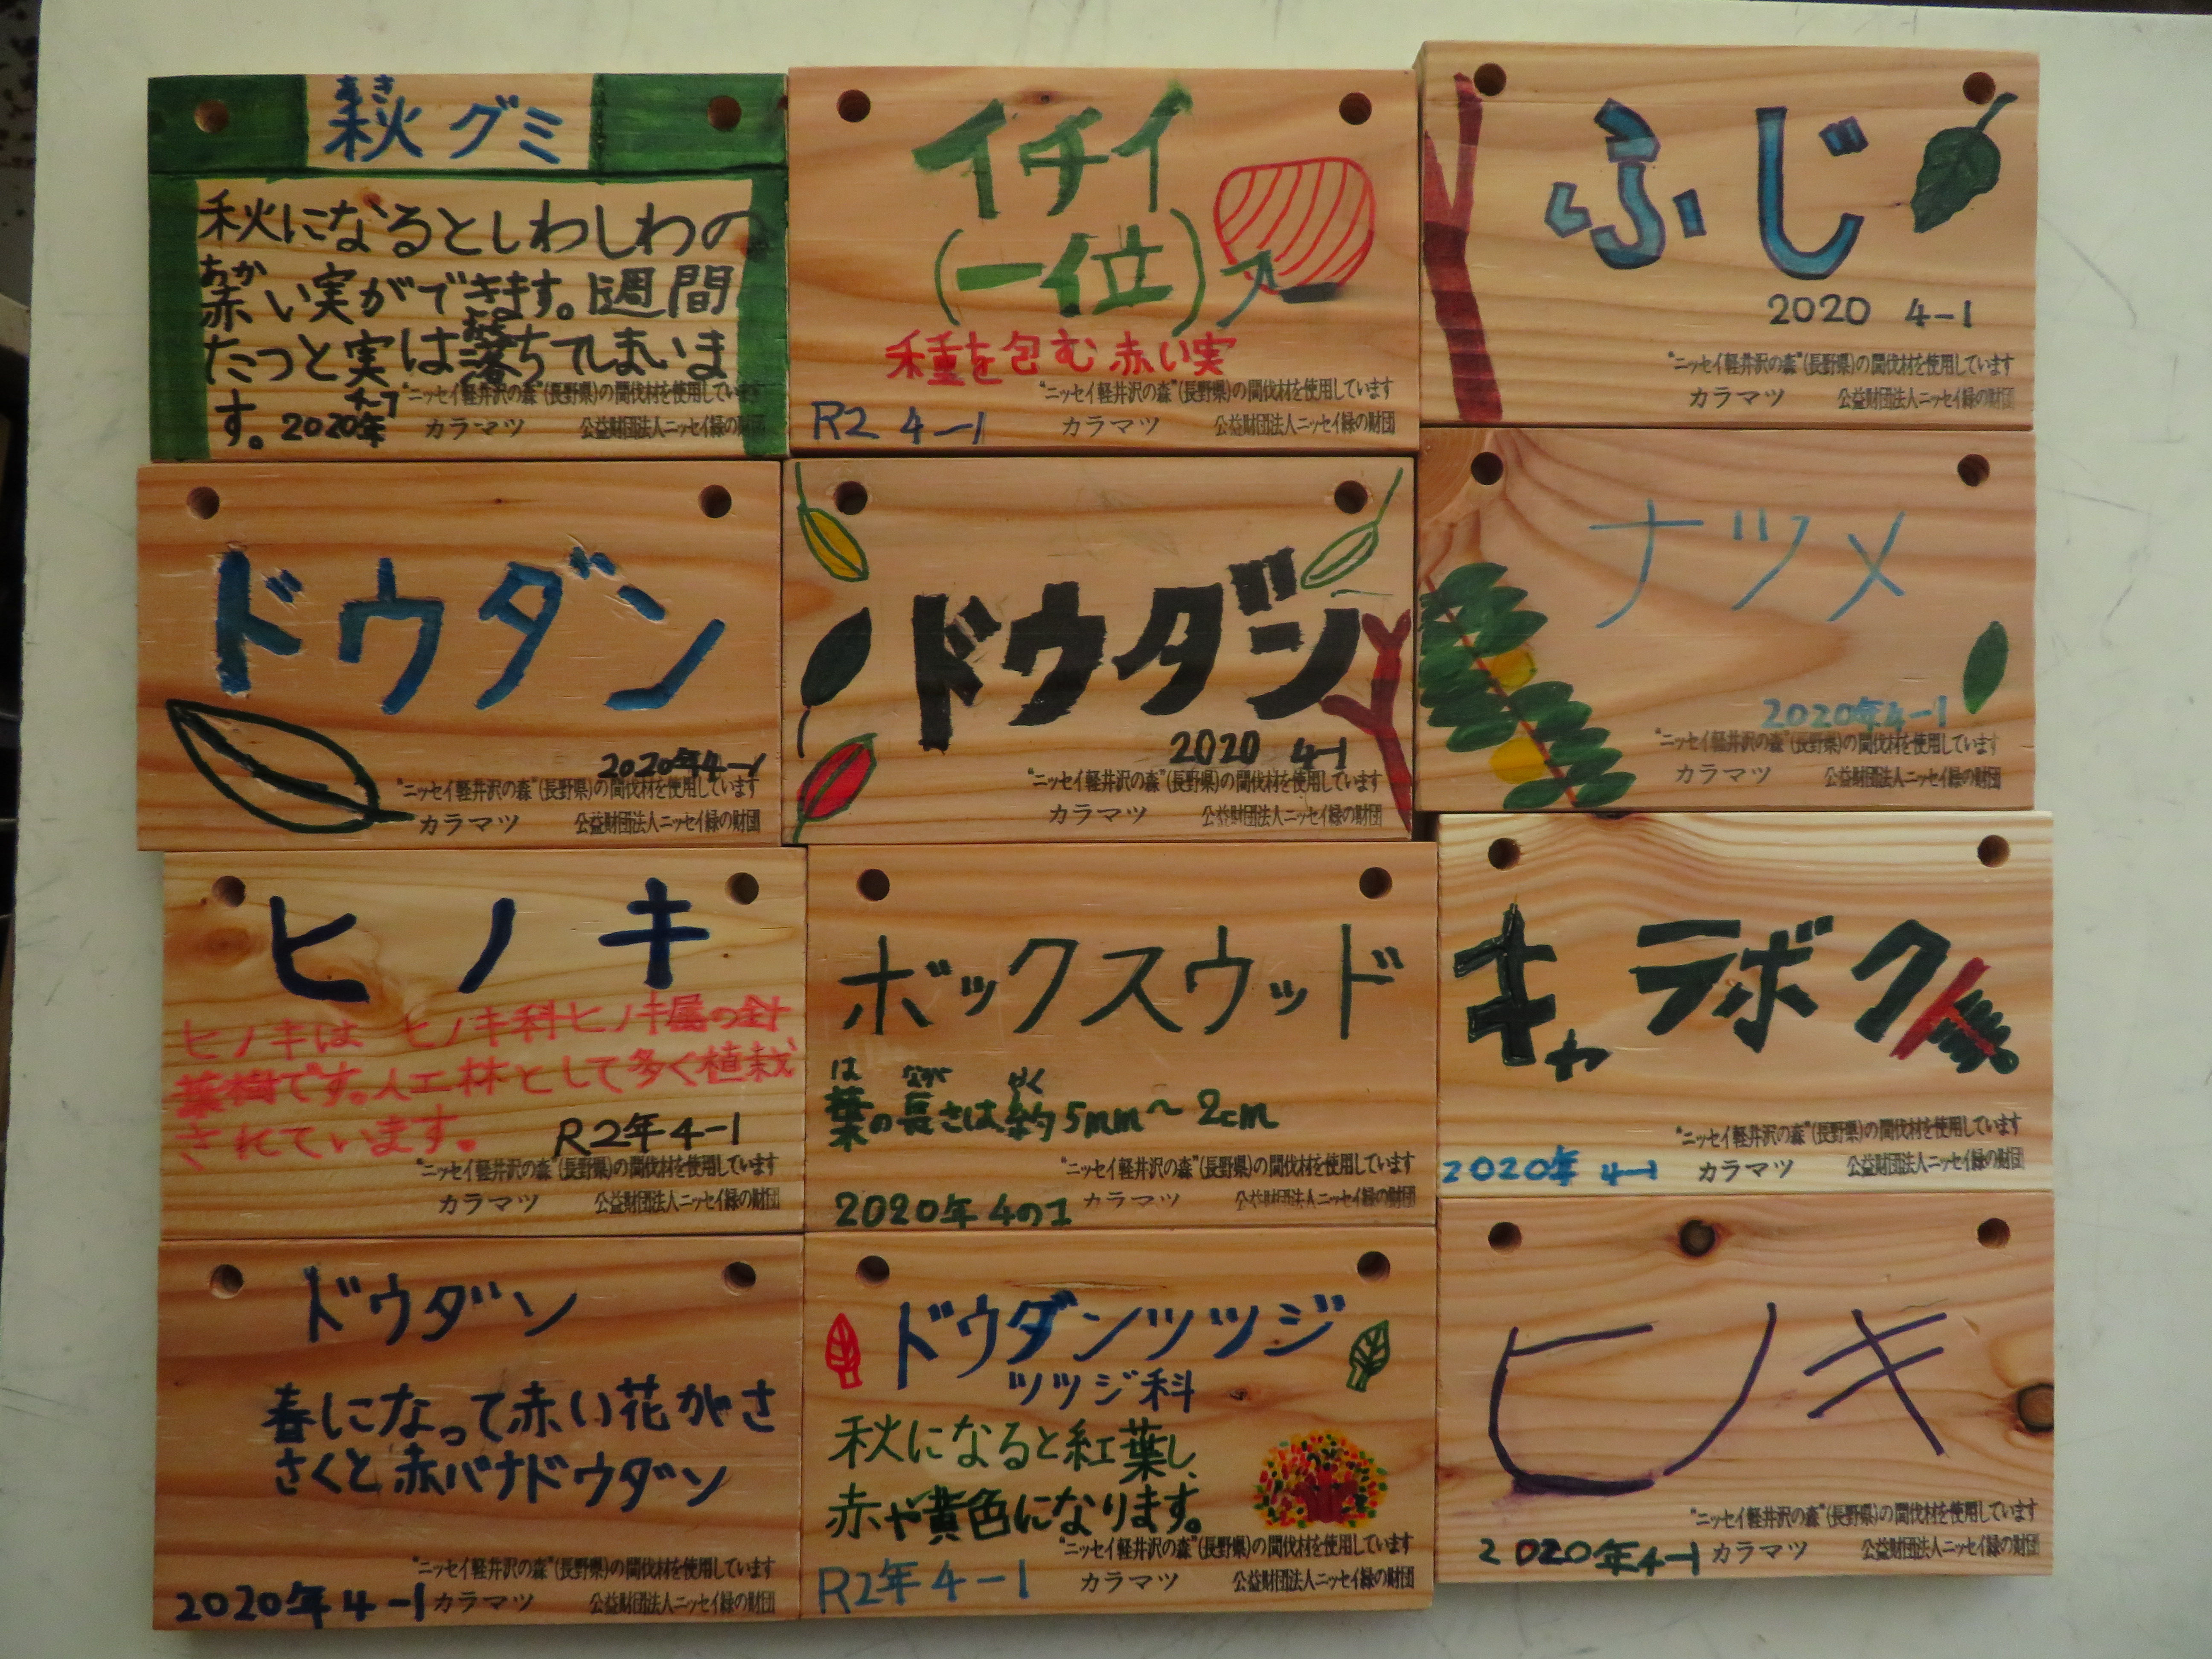 あき
秋グミ
秋になるとしわしわの
あか
赤い実ができます。1週間
たつと実は落ちてしまいま
す。2020年 4-1
"ニッセイ軽井沢の森"(長野県)の間伐材を使用しています
カラマツ 公益財団法人ニッセイ緑の財団
イチイ
(一位)
種を包む赤い実
"ニッセイ軽井沢の森"(長野県)の間伐材を使用しています
R2 4-1 カラマツ 公益財団法人ニッセイ緑の財団
ふじ
2020 4-1
"ニッセイ軽井沢の森"(長野県)の間伐材を使用しています
カラマツ 公益財団法人ニッセイ緑の財団
ドウダン
2020年4-1
"ニッセイ軽井沢の森"(長野県)の間伐材を使用しています
カラマツ 公益財団法人ニッセイ緑の財団
ドウダン
2020 4-1
"ニッセイ軽井沢の森"(長野県)の間伐材を使用しています
カラマツ 公益財団法人ニッセイ緑の財団
ナツメ
2020年4-1
"ニッセイ軽井沢の森"(長野県)の間伐材を使用しています
カラマツ 公益財団法人ニッセイ緑の財団
ヒノキ
ヒノキは ヒノキ科ヒノキ属の針
葉樹です。人工林として多く植栽
されています。
R2年4-1
"ニッセイ軽井沢の森"(長野県)の間伐材を使用しています
カラマツ 公益財団法人ニッセイ緑の財団
ボックスウッド
は なが やく
葉の長さは約5mm~2cm
"ニッセイ軽井沢の森"(長野県)の間伐材を使用しています
2020年4の1 カラマツ 公益財団法人ニッセイ緑の財団
キャラボク
"ニッセイ軽井沢の森"(長野県)の間伐材を使用しています
2020年 4-1 カラマツ 公益財団法人ニッセイ緑の財団
ドウダン
春になって赤い花がさ
さくと赤バナドウダン
"ニッセイ軽井沢の森"(長野県)の間伐材を使用しています
2020年4-1 カラマツ 公益財団法人ニッセイ緑の財団
ドウダンツツジ
ツツジ科
秋になると紅葉し、
赤や黄色になります。
"ニッセイ軽井沢の森"(長野県)の間伐材を使用しています
R2年4-1 カラマツ 公益財団法人ニッセイ緑の財団
ヒノキ
"ニッセイ軽井沢の森"(長野県)の間伐材を使用しています
2020年4-1 カラマツ 公益財団法人ニッセイ緑の財団